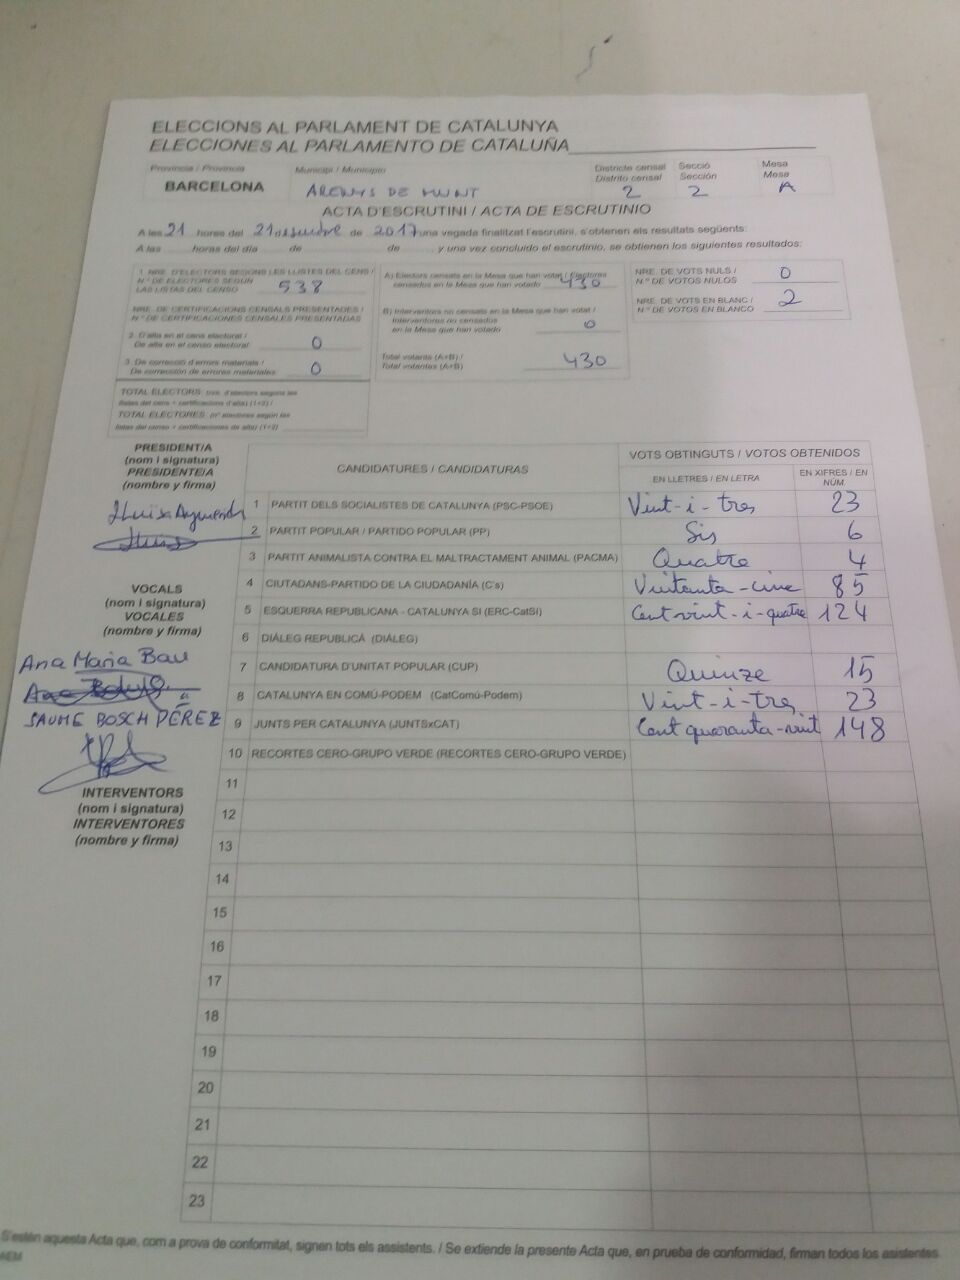 ELECCIONS AL PARLAMENT DE CATALUNYA
ELECCIONES AL PARLAMENTO DE CATALUÑA
Provincia / Provincia
BARCELONA
Municipi / Municipio
ARENYS DE MUNT
Districte censal
Distrito censal
2
Secció
Sección
2
Mesa
Mesa
A
ACTA D'ESCRUTINI / ACTA DE ESCRUTINIO
A les 21 hores del 21 desembre de 2017 una vegada finalitzat l'escrutini, s'obtenen els resultats següents:
A las horas del día de de y una vez concluido el escrutinio, se obtienen los siguientes resultados:
1. NRE. D'ELECTORS SEGONS LES LLISTES DEL CENS /
N.º DE ELECTORES SEGÚN
LAS LISTAS DEL CENSO
538
NRE. DE CERTIFICACIONS CENSALS PRESENTADES /
N.º DE CERTIFICACIONES CENSALES PRESENTADAS
2. D'alta en el cens electoral /
De alta en el censo electoral
0
3. De correcció d'errors materials /
De corrección de errores materiales
0
TOTAL ELECTORS (nre. d'electors segons les
llistes del cens + certificacions d'alta) (1+2) /
TOTAL ELECTORES (nº electores según las
listas del censo + certificaciones de alta) (1+2)
A) Electors censats en la Mesa que han votat / Electores
censados en la Mesa que han votado
430
B) Interventors no censats en la Mesa que han votat /
Interventores no censados
en la Mesa que han votado
0
Total votants (A+B) /
Total votantes (A+B)
430
NRE. DE VOTS NULS /
N.º DE VOTOS NULOS
0
NRE. DE VOTS EN BLANC /
N.º DE VOTOS EN BLANCO
2
PRESIDENT/A
(nom i signatura)
PRESIDENTE/A
(nombre y firma)
VOCALS
(nom i signatura)
VOCALES
(nombre y firma)
Ana Maria Bau
JAUME BOSCH PÉREZ
INTERVENTORS
(nom i signatura)
INTERVENTORES
(nombre y firma)
CANDIDATURES / CANDIDATURAS
VOTS OBTINGUTS / VOTOS OBTENIDOS
EN LLETRES / EN LETRA
EN XIFRES / EN
NÚM.
1 PARTIT DELS SOCIALISTES DE CATALUNYA (PSC-PSOE) Vint-i-tres 23
2 PARTIT POPULAR / PARTIDO POPULAR (PP) Sis 6
3 PARTIT ANIMALISTA CONTRA EL MALTRACTAMENT ANIMAL (PACMA) Quatre 4
4 CIUTADANS-PARTIDO DE LA CIUDADANÍA (C's) Vuitanta-cinc 85
5 ESQUERRA REPUBLICANA - CATALUNYA SI (ERC-CatSí) Cent vint-i-quatre 124
6 DIÀLEG REPUBLICÀ (DIÀLEG)
7 CANDIDATURA D'UNITAT POPULAR (CUP) Quinze 15
8 CATALUNYA EN COMÚ-PODEM (CatComú-Podem) Vint-i-tres 23
9 JUNTS PER CATALUNYA (JUNTSxCAT) Cent quaranta-vuit 148
10 RECORTES CERO-GRUPO VERDE (RECORTES CERO-GRUPO VERDE)
11
12
13
14
15
16
17
18
19
20
21
22
23
S'estén aquesta Acta que, com a prova de conformitat, signen tots els assistents. / Se extiende la presente Acta que, en prueba de conformidad, firman todos los asistentes.